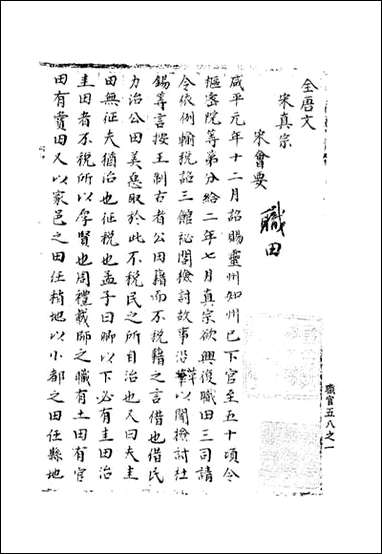 全唐文
宋真宗
宋會要
職田
咸平元年十二月詔賜靈州知州已下官至五十頃令
樞密院等第分給二年七月真宗欲興復職田三司請
令依例輸稅詔三館祕閣檢討故事沿革以聞檢討杜
鎬等言按王制古者公田藉而不稅藉之言借也借民
力治公田美惡取於此不稅民之所自治也又曰夫圭
田無征夫猶治也征稅也孟子曰卿以下必有圭田治
圭田者不稅所以厚賢也周禮載師之職有士田有官
田有賞田又以家邑之田任稍地以小都之田任縣地
職官五八之一